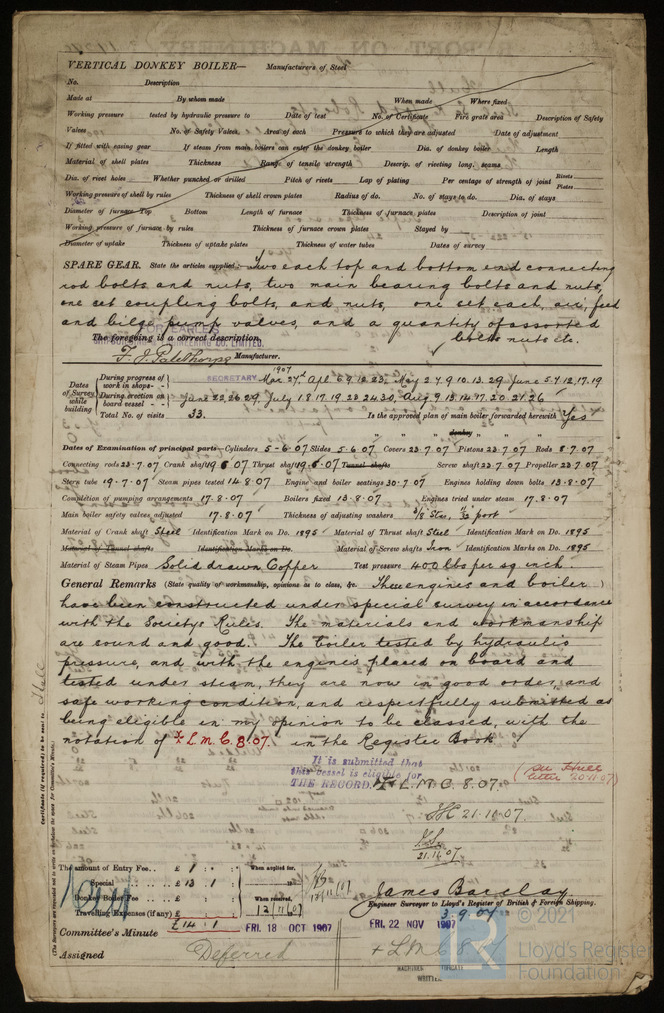 VERTICAL DONKEY BOILER— Manufacturers of Steel
No. Description
Made at By whom made When made Where fixed
Working pressure tested by hydraulic pressure to Date of test No. of Certificate Fire grate area Description of Safety
Valves No. of Safety Valves Area of each Pressure to which they are adjusted Date of adjustment
If fitted with easing gear If steam from main boilers can enter the donkey boiler Dia. of donkey boiler Length
Material of shell plates Thickness Range of tensile strength Descrip. of riveting long. seams
Dia. of rivet holes Whether punched or drilled Pitch of rivets Lap of plating Per centage of strength of joint Rivets Plates
Working pressure of shell by rules Thickness of shell crown plates Radius of do. No. of stays to do. Dia. of stays
Diameter of furnace Top Bottom Length of furnace Thickness of furnace plates Description of joint
Working pressure of furnace by rules Thickness of furnace crown plates Stayed by
Diameter of uptake Thickness of uptake plates Thickness of water tubes Dates of survey
SPARE GEAR. State the articles supplied:— Two each top and bottom end connecting
rod bolts and nuts, two main bearing bolts and nuts,
one set coupling bolts, and nuts, one set each, air, feed
and bilge pump valves, and a quantity of assorted
bolts nuts etc.
FOR EARLE'S
The foregoing is a correct description,
F. J. Palethorpe Manufacturer.
SECRETARY
Dates of Survey while building
During progress of work in shops - - 1907 Mar 27. Apl 8 9. 12. 23. May 2. 7. 9. 10. 13. 29. June 5. 7. 12. 17. 19
During erection on board vessel - - June 22. 26. 29. July 1. 8. 17. 19. 23. 24. 30. Aug. 9. 13. 14. 17. 20. 21. 26
Total No. of visits 33. Is the approved plan of main boiler forwarded herewith Yes
" " " donkey " " "
Dates of Examination of principal parts—Cylinders 5-6-07 Slides 5-6.07 Covers 23.7.07 Pistons 23.7.07 Rods 8.7.07
Connecting rods 23.7.07 Crank shaft 19.6.07 Thrust shaft 19.6.07 Tunnel shafts Screw shaft 23.7.07 Propeller 23.7.07
Stern tube 19.7.07 Steam pipes tested 14.8.07 Engine and boiler seatings 30.7.07 Engines holding down bolts 13.8.07
Completion of pumping arrangements 17.8.07 Boilers fixed 13.8.07 Engines tried under steam 17.8.07
Main boiler safety valves adjusted 17.8.07 Thickness of adjusting washers
Material of Crank shaft Steel Identification Mark on Do. 1895 Material of Thrust shaft Steel Identification Mark on Do. 1895
Material of Tunnel shafts Identification Marks on Do. Material of Screw shafts Iron Identification Marks on Do. 1895
Material of Steam Pipes Solid drawn Copper Test pressure 400 lbs per sq inch.
General Remarks (State quality of workmanship, opinions as to class, &c. These engines and boiler
have been constructed under special survey in accordance
with the Society's Rules. The materials and workmanship
are sound and good. The boiler tested by hydraulic
pressure, and with the engines placed on board and
tested under steam, they are now in good order, and
safe working condition, and respectfully submitted as
being eligible in my opinion to be classed, with the
notation of + L.M.C. 8.07. in the Register Book
It is submitted that
this vessel is eligible for
THE RECORD. + L.M.C. 8.07.
(See Hull letter 20.11.07)
21.10.07.
21.10.07
Certificate (if required) to be sent to Hull
The amount of Entry Fee.. £ 1 : : When applied for,
Special .. .. .. .. £ 13 : 1 :
Donkey Boiler Fee .. .. £ : : When received,
Travelling Expenses (if any) £ : : 12/11/07
£14 : 1
James Barclay
Engineer Surveyor to Lloyd's Register of British & Foreign Shipping.
3.9.07
Committee's Minute FRI. 18 OCT 1907 FRI. 22 NOV 1907
Assigned Deferred + L.M.C 8.07
MACHINERY CERTIFICATE
WRITTEN
© 2021
LR
Lloyd's Register
Foundation